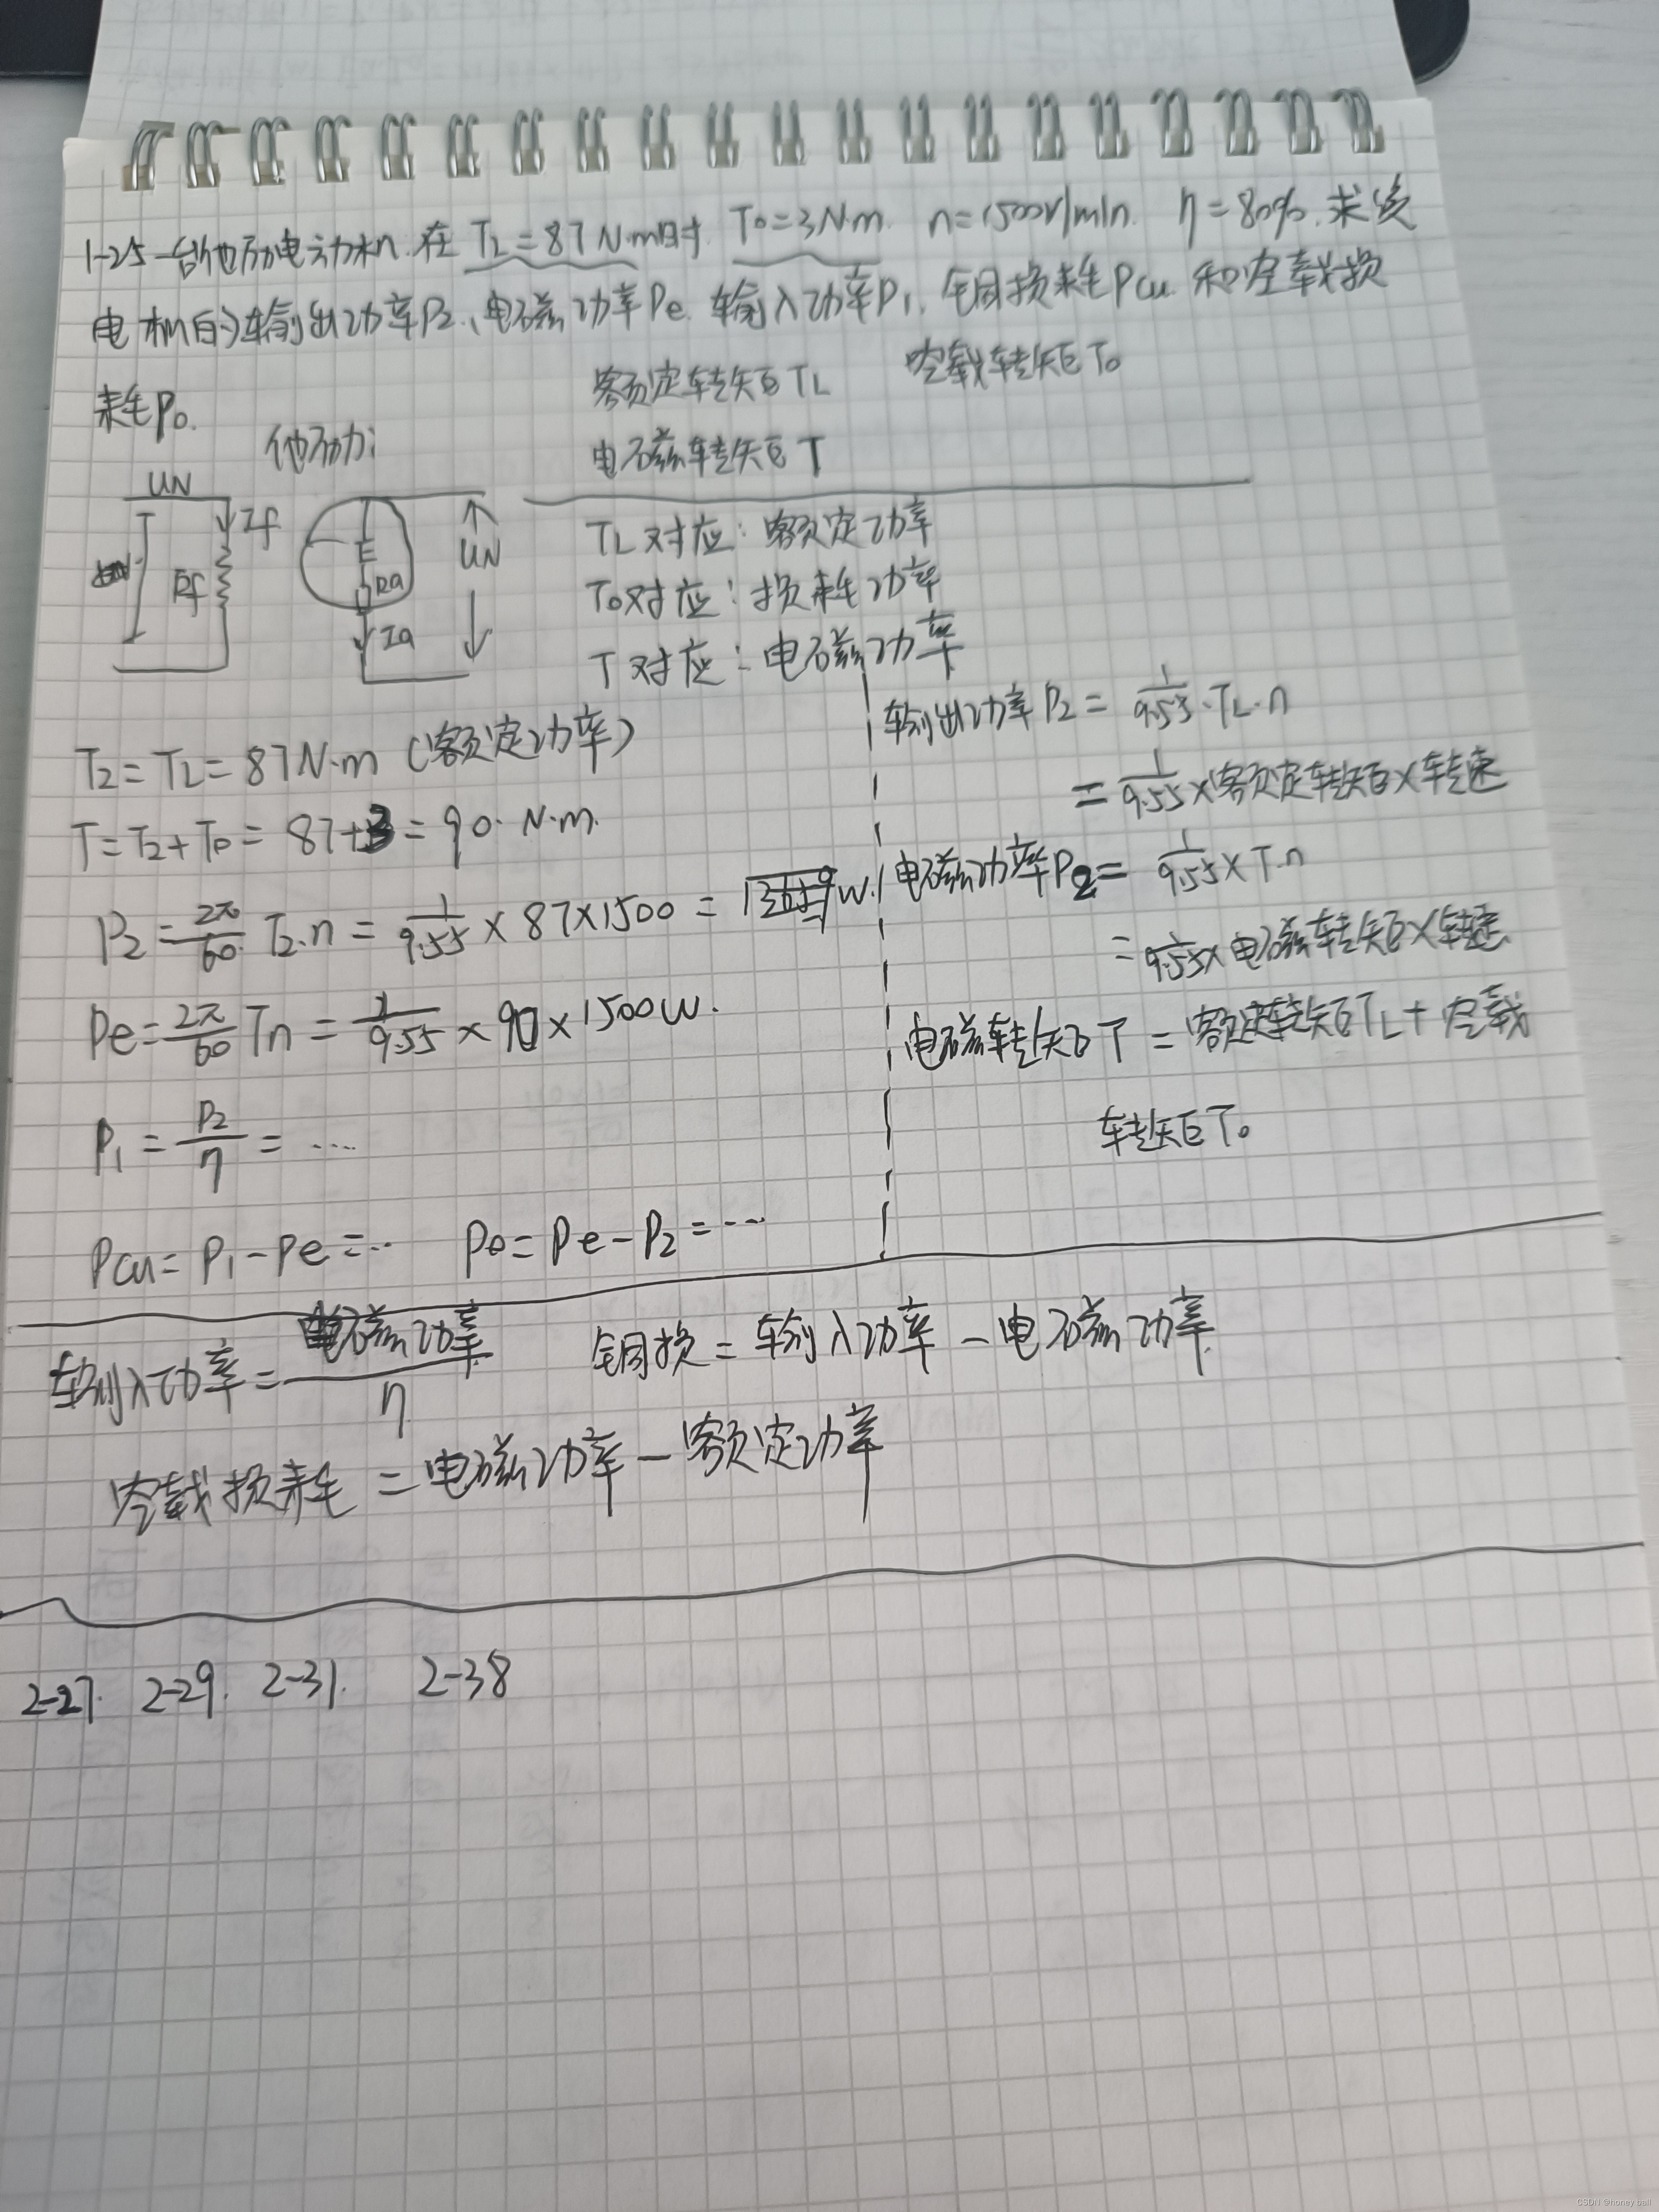 1-25 一台他励电动机.在 TL=87N·m时. T0=3N·m. n=1500r/min. η=80%.求该
电机的输出功率P2、电磁功率Pe. 输入功率P1、铜损耗Pcu 和空载损
耗P0.
额定转矩TL 空载转矩T0
电磁转矩T
他励:
UN
If
Rf
E
Ra
Ia
UN
TL对应:额定功率
T0对应:损耗功率
T对应:电磁功率
T2=TL=87N·m (额定功率)
T=T2+T0=87+3=90·N·m.
P2=2π/60 T2·n=1/9.55×87×1500=13659W.
Pe=2π/60 Tn=1/9.55×90×1500W.
P1=P2/η=····
Pcu=P1-Pe=·· P0=Pe-P2=···
输出功率P2=1/9.55·TL·n
=1/9.55×额定转矩×转速
电磁功率P2=1/9.55×T·n
=1/9.55×电磁转矩×转速
电磁转矩T=额定转矩TL+空载
转矩T0
输入功率=电磁功率/η 铜损=输入功率-电磁功率
空载损耗=电磁功率-额定功率
2-27. 2-29. 2-31. 2-38
CSDN @honey ball